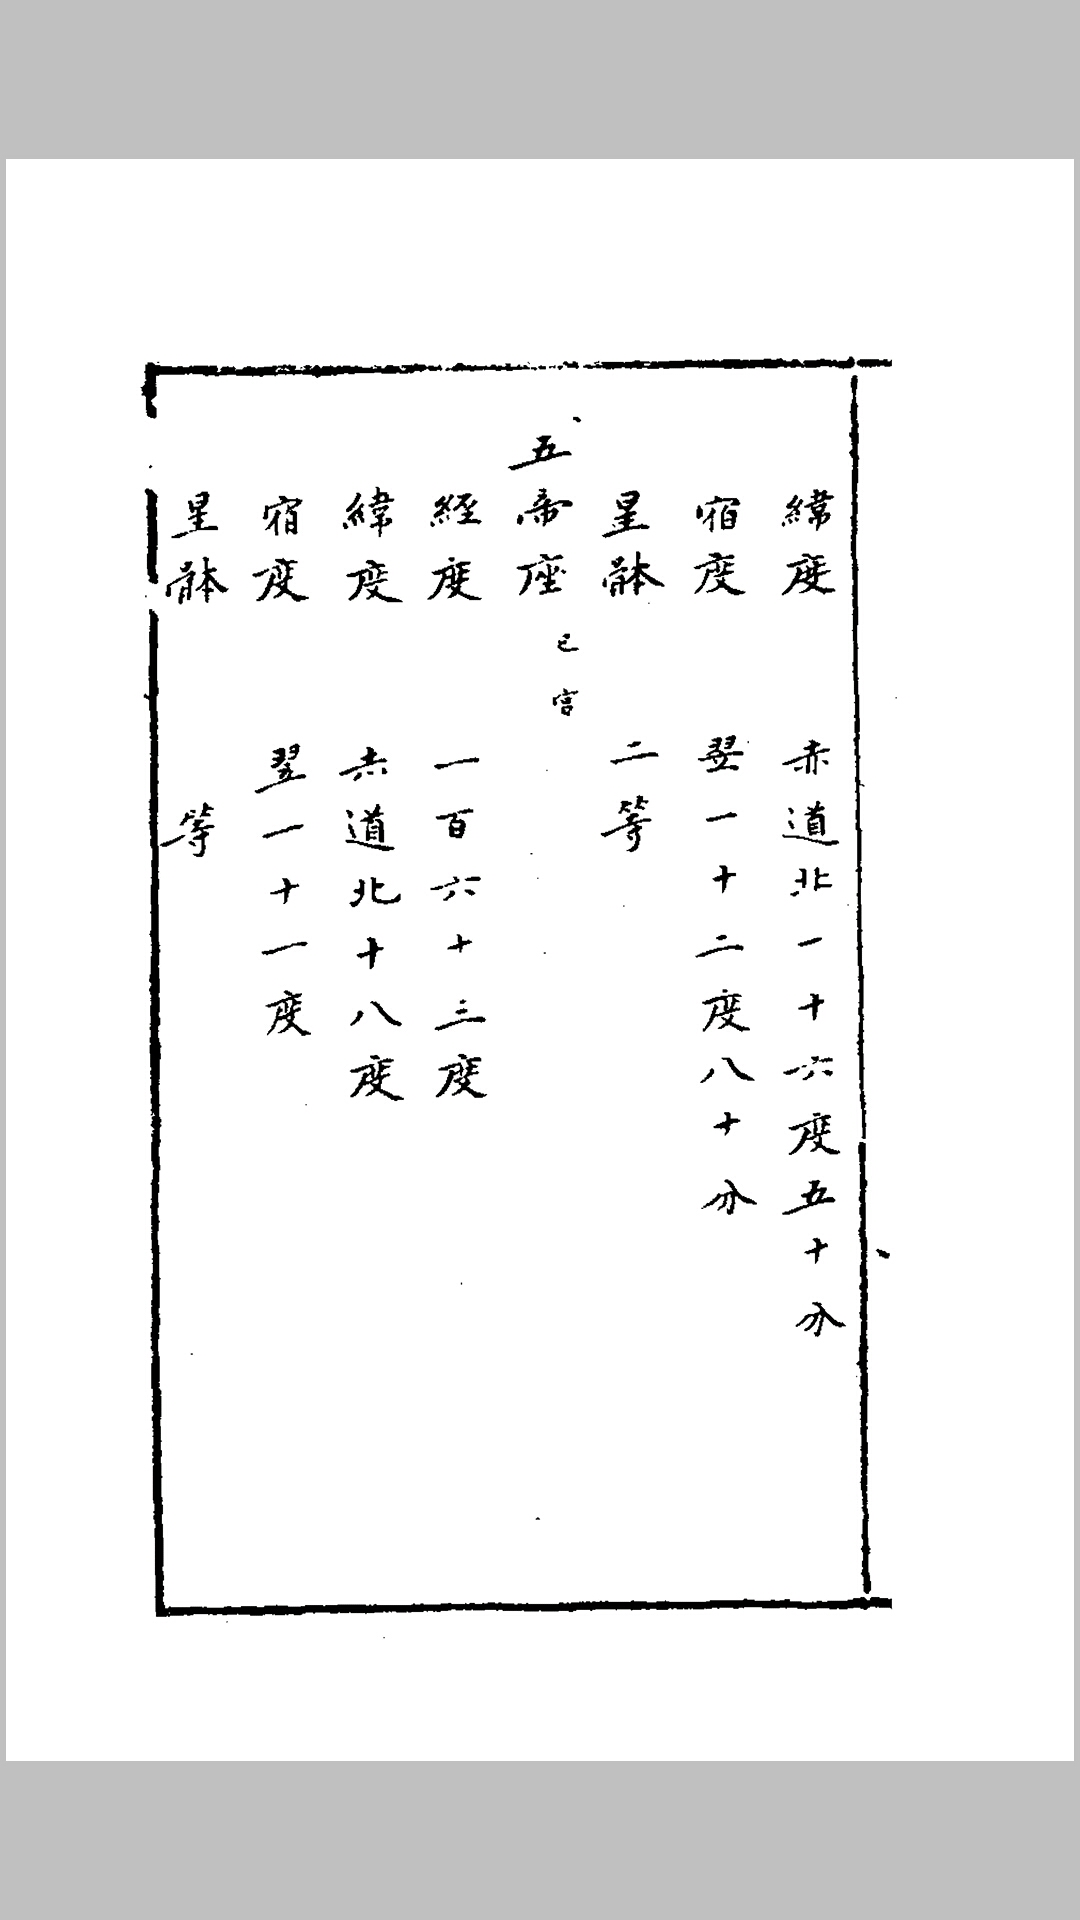 緯度 赤道北一十六度五十分
宿度 翌一十二度八十分
星躰 二等
五帝座 巳宮
經度 一百六十三度
緯度 赤道北十八度
宿度 翌一十一度
星躰 等